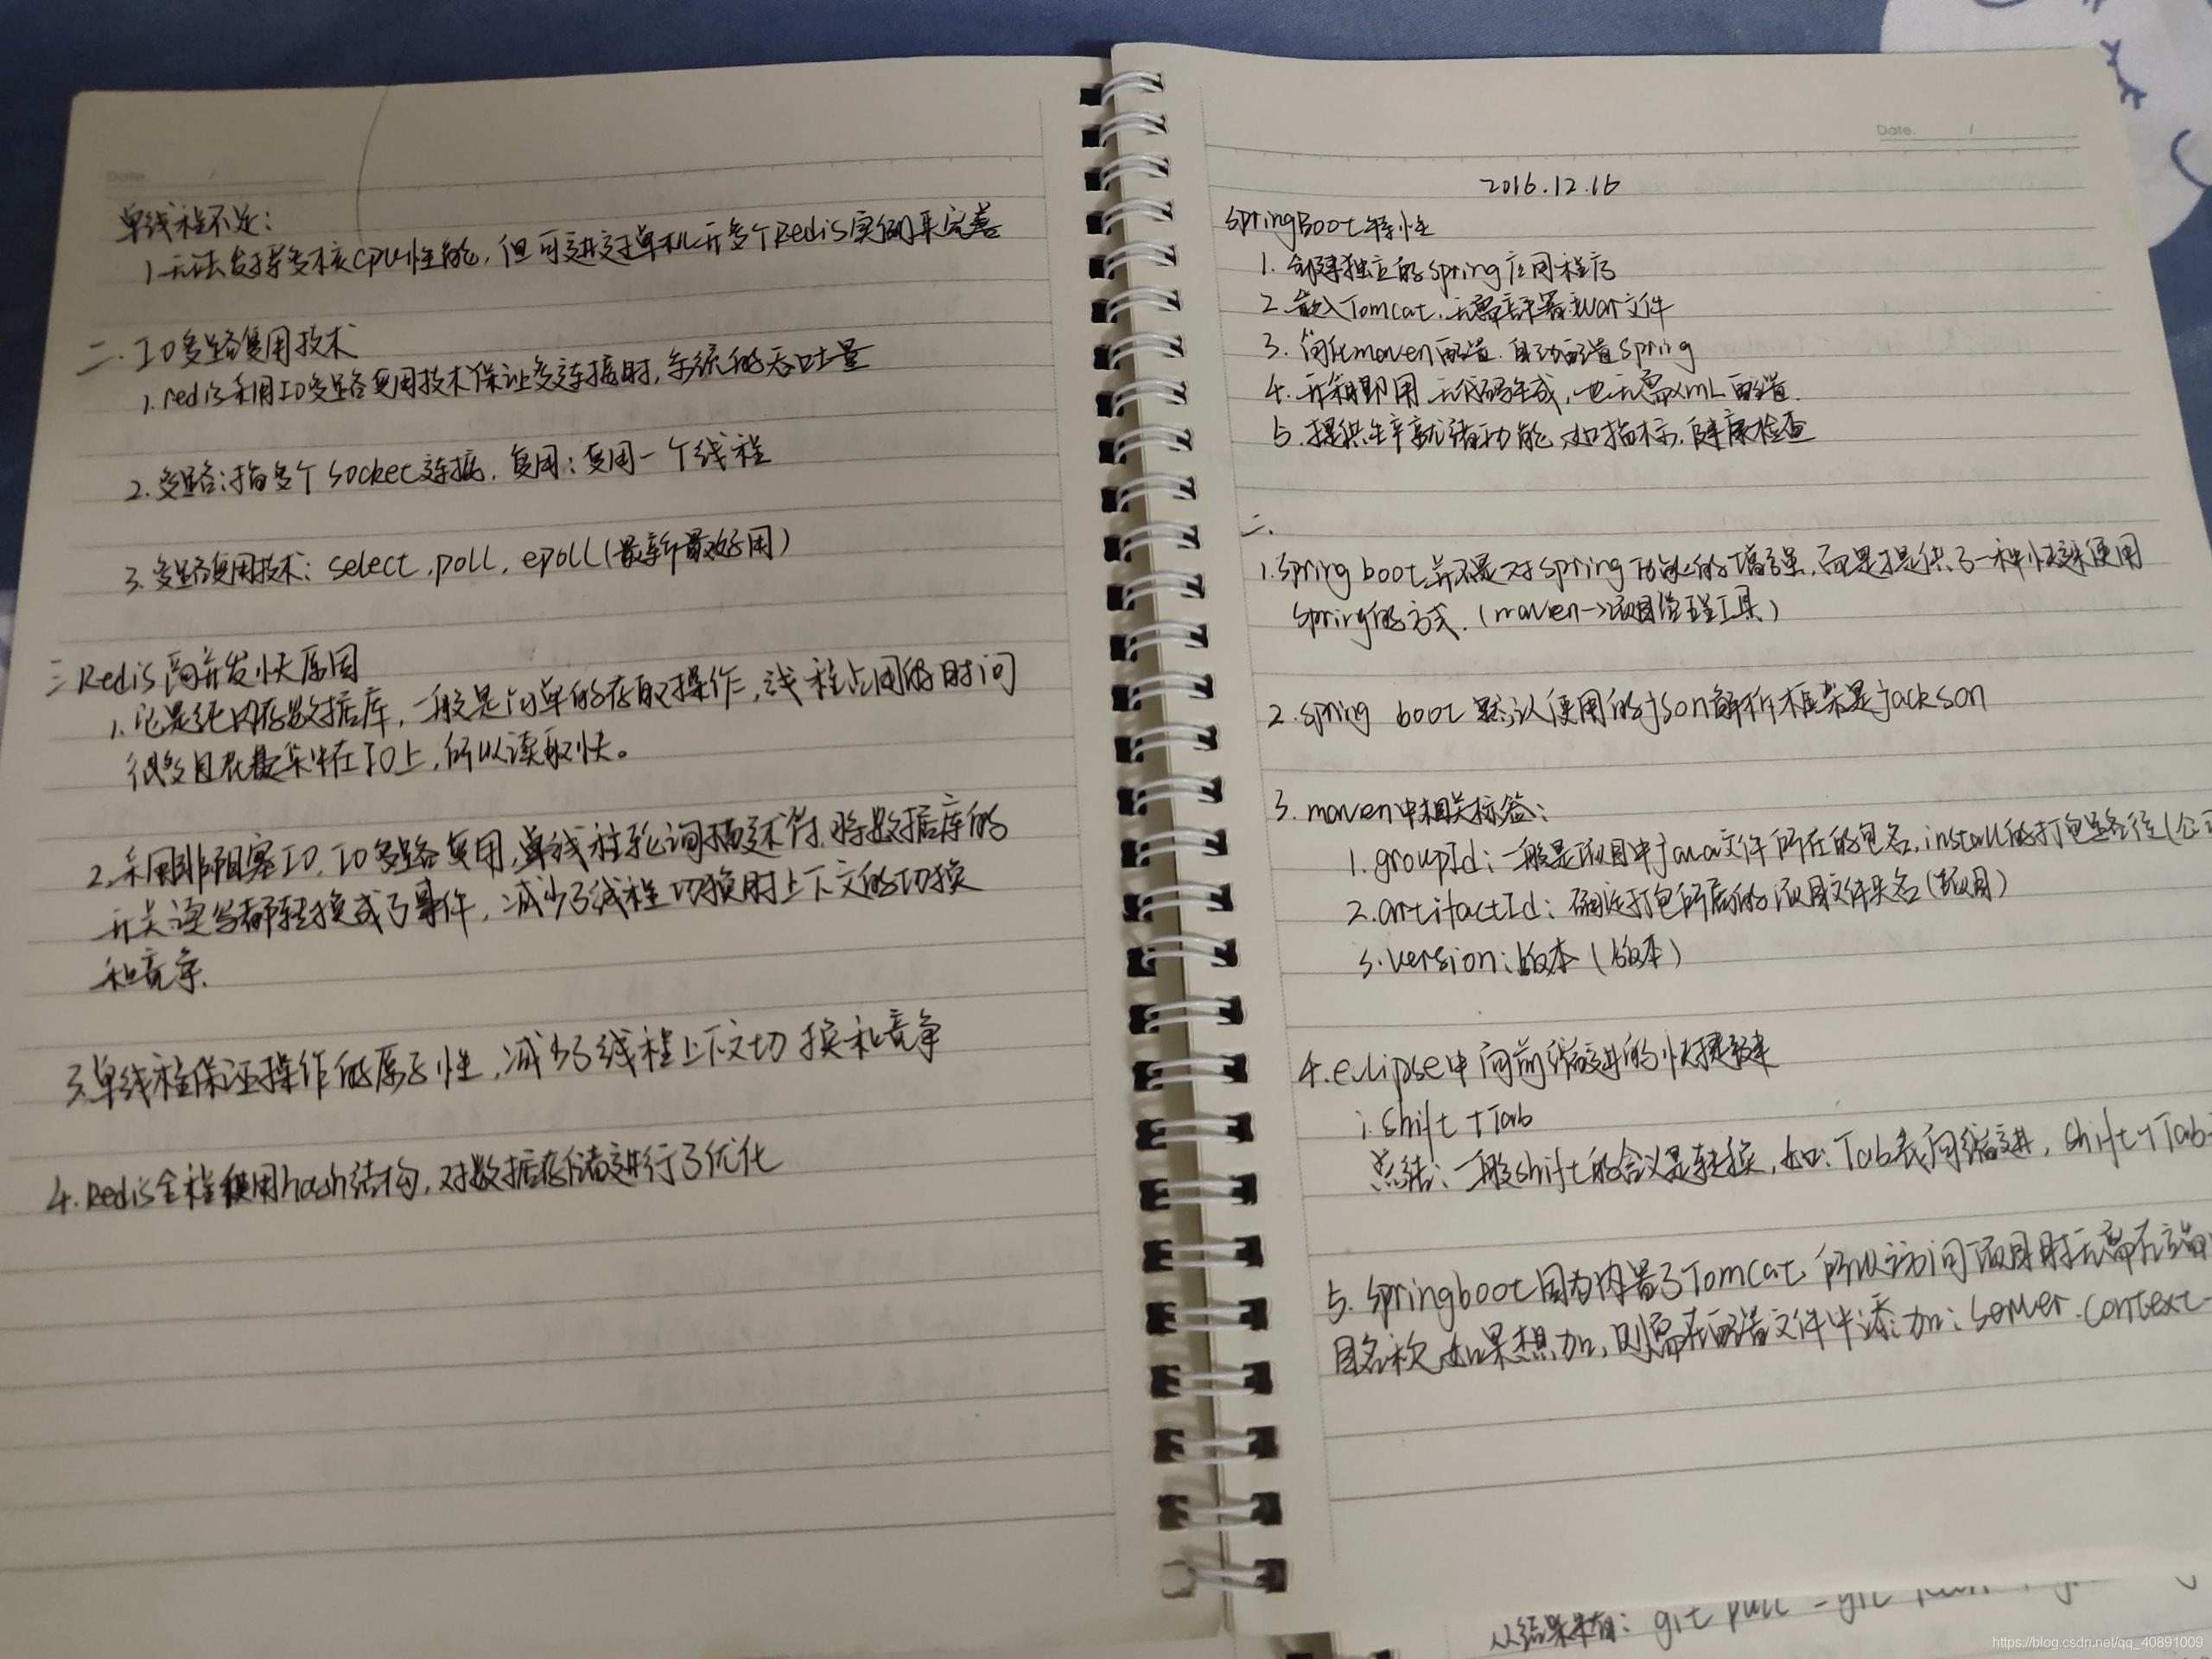 Date.
单线程不足:
1.无法发挥多核CPU性能,但可通过单机开多个Redis实例来完善
二.IO多路复用技术
1.redis利用IO多路复用技术保证多连接时,系统的吞吐量
2.多路:指多个socket连接,复用:复用一个线程
3.多路复用技术:select,poll,epoll(最新最好用)
三Redis高并发快原因
1.它是纯内存数据库,一般是简单的存取操作,线程占用的时间
很多且花费集中在IO上,所以读取快。
2.采用非阻塞IO,IO多路复用,单线程轮询描述符,将数据库的
开关读写都转换成了事件,减少了线程切换时上下文的切换
和竞争.
3.单线程保证操作的原子性,减少了线程上下文切换和竞争
4.Redis全程使用hash结构,对数据存储进行了优化
Date.
2016.12.16
SpringBoot特性
1.创建独立的Spring应用程序
2.嵌入Tomcat,无需部署war文件
3.简化maven配置,自动配置Spring
4.开箱即用,无代码生成,也无需XML配置.
5.提供生产就绪功能,如指标,健康检查
二.
1.Spring boot并不是对Spring功能的增强,而是提供了一种快速使用
Spring的方式.(maven->项目管理工具)
2.spring boot默认使用的json解析框架是jackson
3.maven中相关标签:
1.groupId:一般是项目中java文件所在的包名,install的打包路径(公司
2.artifactId:确定打包所属的项目文件夹名(项目)
3.version:版本(版本)
4.eclipse中向前缩进的快捷键
1.shift+Tab
总结:一般shift的含义是转换,如:Tab表向缩进,shift+Tab
5.Springboot因为内置了Tomcat,所以访问项目时无需在
目名称,如果想加,则需在配置文件中添加:server.context-
从结果来看:git pull = git
https://blog.csdn.net/qq_40891009